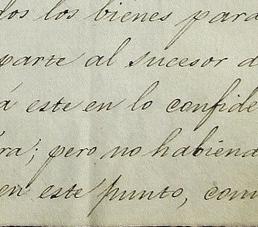 dos los bienes para
parte al sucesor d
á este en lo confide
ra; pero no habiend
en este punto, com